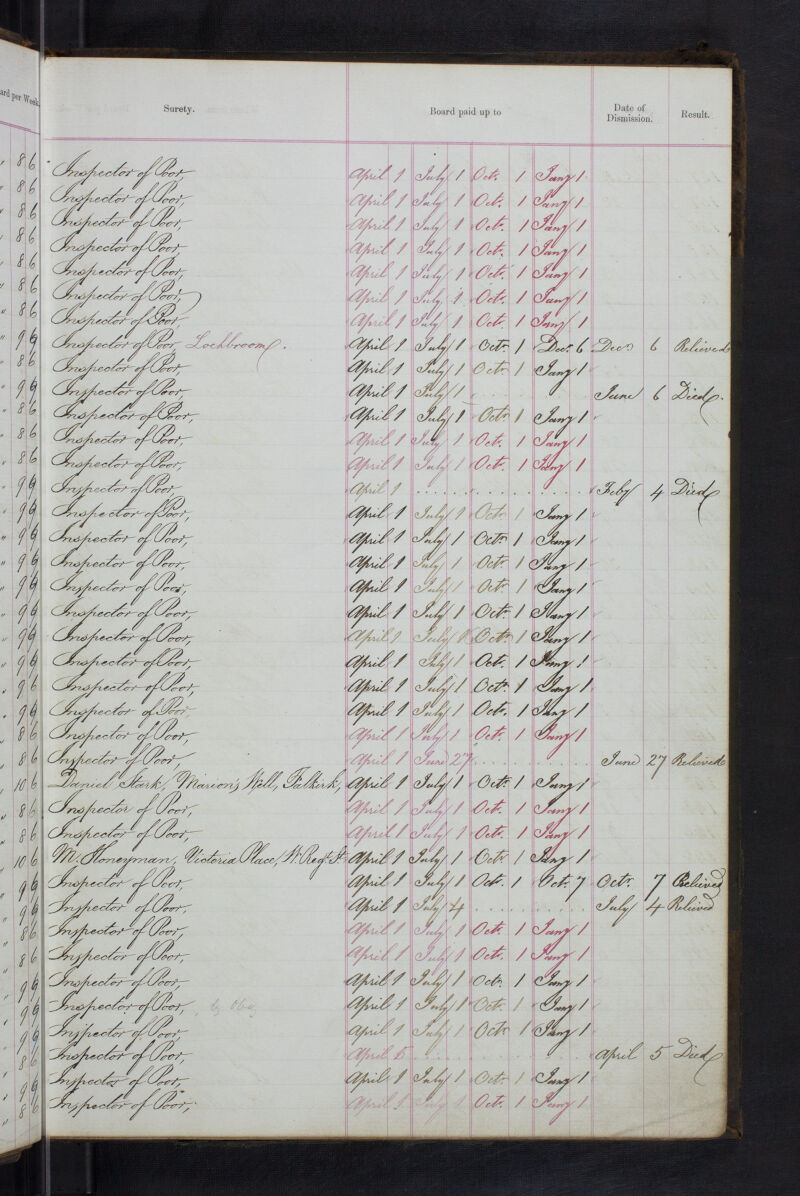 ard per Week. Surety. Board paid up to Date of Dismission. Result.
" 8 6 Inspector of Poor April 1 July 1 Oct. 1 Jany 1
" 8 6 Inspector of Poor, April 1 July 1 Oct. 1 Jany 1
" 8 6 Inspector of Poor, April 1 July 1 Oct. 1 Jany 1
" 8 6 Inspector of Poor April 1 July 1 Oct. 1 Jany 1
" 8 6 Inspector of Poor, April 1 July 1 Oct. 1 Jany 1
" 8 6 Inspector of Poor, April 1 July 1 Oct. 1 Jany 1
" 8 6 Inspector of Poor, April 1 July 1 Oct. 1 Jany 1
" 9 6 Inspector of Poor, Lochbroom. April 1 July 1 Oct. 1 Decr. 6 Decr 6 Relieved
" 8 6 Inspector of Poor April 1 July 1 Oct. 1 Jany 1
" 9 6 Inspector of Poor, April 1 July 1 June 6 Died.
" 8 6 Inspector of Poor, April 1 July 1 Oct. 1 Jany 1
" 8 6 Inspector of Poor April 1 July 1 Oct. 1 Jany 1
" 8 6 Inspector of Poor, April 1 July 1 Oct. 1 Jany 1
" 9 6 Inspector of Poor April 1 Feby 4 Died
" 9 6 Inspector of Poor, April 1 July 1 Oct. 1 Jany 1
" 9 6 Inspector of Poor, April 1 July 1 Oct. 1 Jany 1
" 9 6 Inspector of Poor, April 1 July 1 Oct. 1 Jany 1
" 9 6 Inspector of Poor, April 1 July 1 Oct. 1 Jany 1
" 9 6 Inspector of Poor, April 1 July 1 Oct. 1 Jany 1
" 9 6 Inspector of Poor, April 1 July 1 Oct. 1 Jany 1
" 9 6 Inspector of Poor, April 1 July 1 Oct. 1 Jany 1
" 9 6 Inspector of Poor, April 1 July 1 Oct. 1 Jany 1
" 9 6 Inspector of Poor, April 1 July 1 Oct. 1 Jany 1
" 8 6 Inspector of Poor, April 1 July 1 Oct. 1 Jany 1
" 8 6 Inspector of Poor, April 1 June 27 June 27 Relieved
" 10 6 Daniel Stark, Marion's Well, Falkirk, April 1 July 1 Oct. 1 Jany 1
" 8 6 Inspector of Poor, April 1 July 1 Oct. 1 Jany 1
" 8 6 Inspector of Poor, April 1 July 1 Oct. 1 Jany 1
" 10 6 M. Honeyman, Victoria Place, W. Regt. St. April 1 July 1 Oct. 1 Jany 1
" 9 6 Inspector of Poor, April 1 July 1 Oct. 1 Oct. 7 Oct. 7 Relieved
" 9 6 Inspector of Poor, April 1 July 4 July 4 Relieved
" 8 6 Inspector of Poor, April 1 July 1 Oct. 1 Jany 1
" 8 6 Inspector of Poor, April 1 July 1 Oct. 1 Jany 1
" 9 6 Inspector of Poor, April 1 July 1 Oct. 1 Jany 1
" 9 6 Inspector of Poor, April 1 July 1 Oct. 1 Jany 1
" 9 6 Inspector of Poor, April 1 July 1 Oct. 1 Jany 1
" 8 6 Inspector of Poor, April 5 April 5 Died
" 9 6 Inspector of Poor, April 1 July 1 Oct. 1 Jany 1
" 8 6 Inspector of Poor, April 1 July 1 Oct. 1 Jany 1